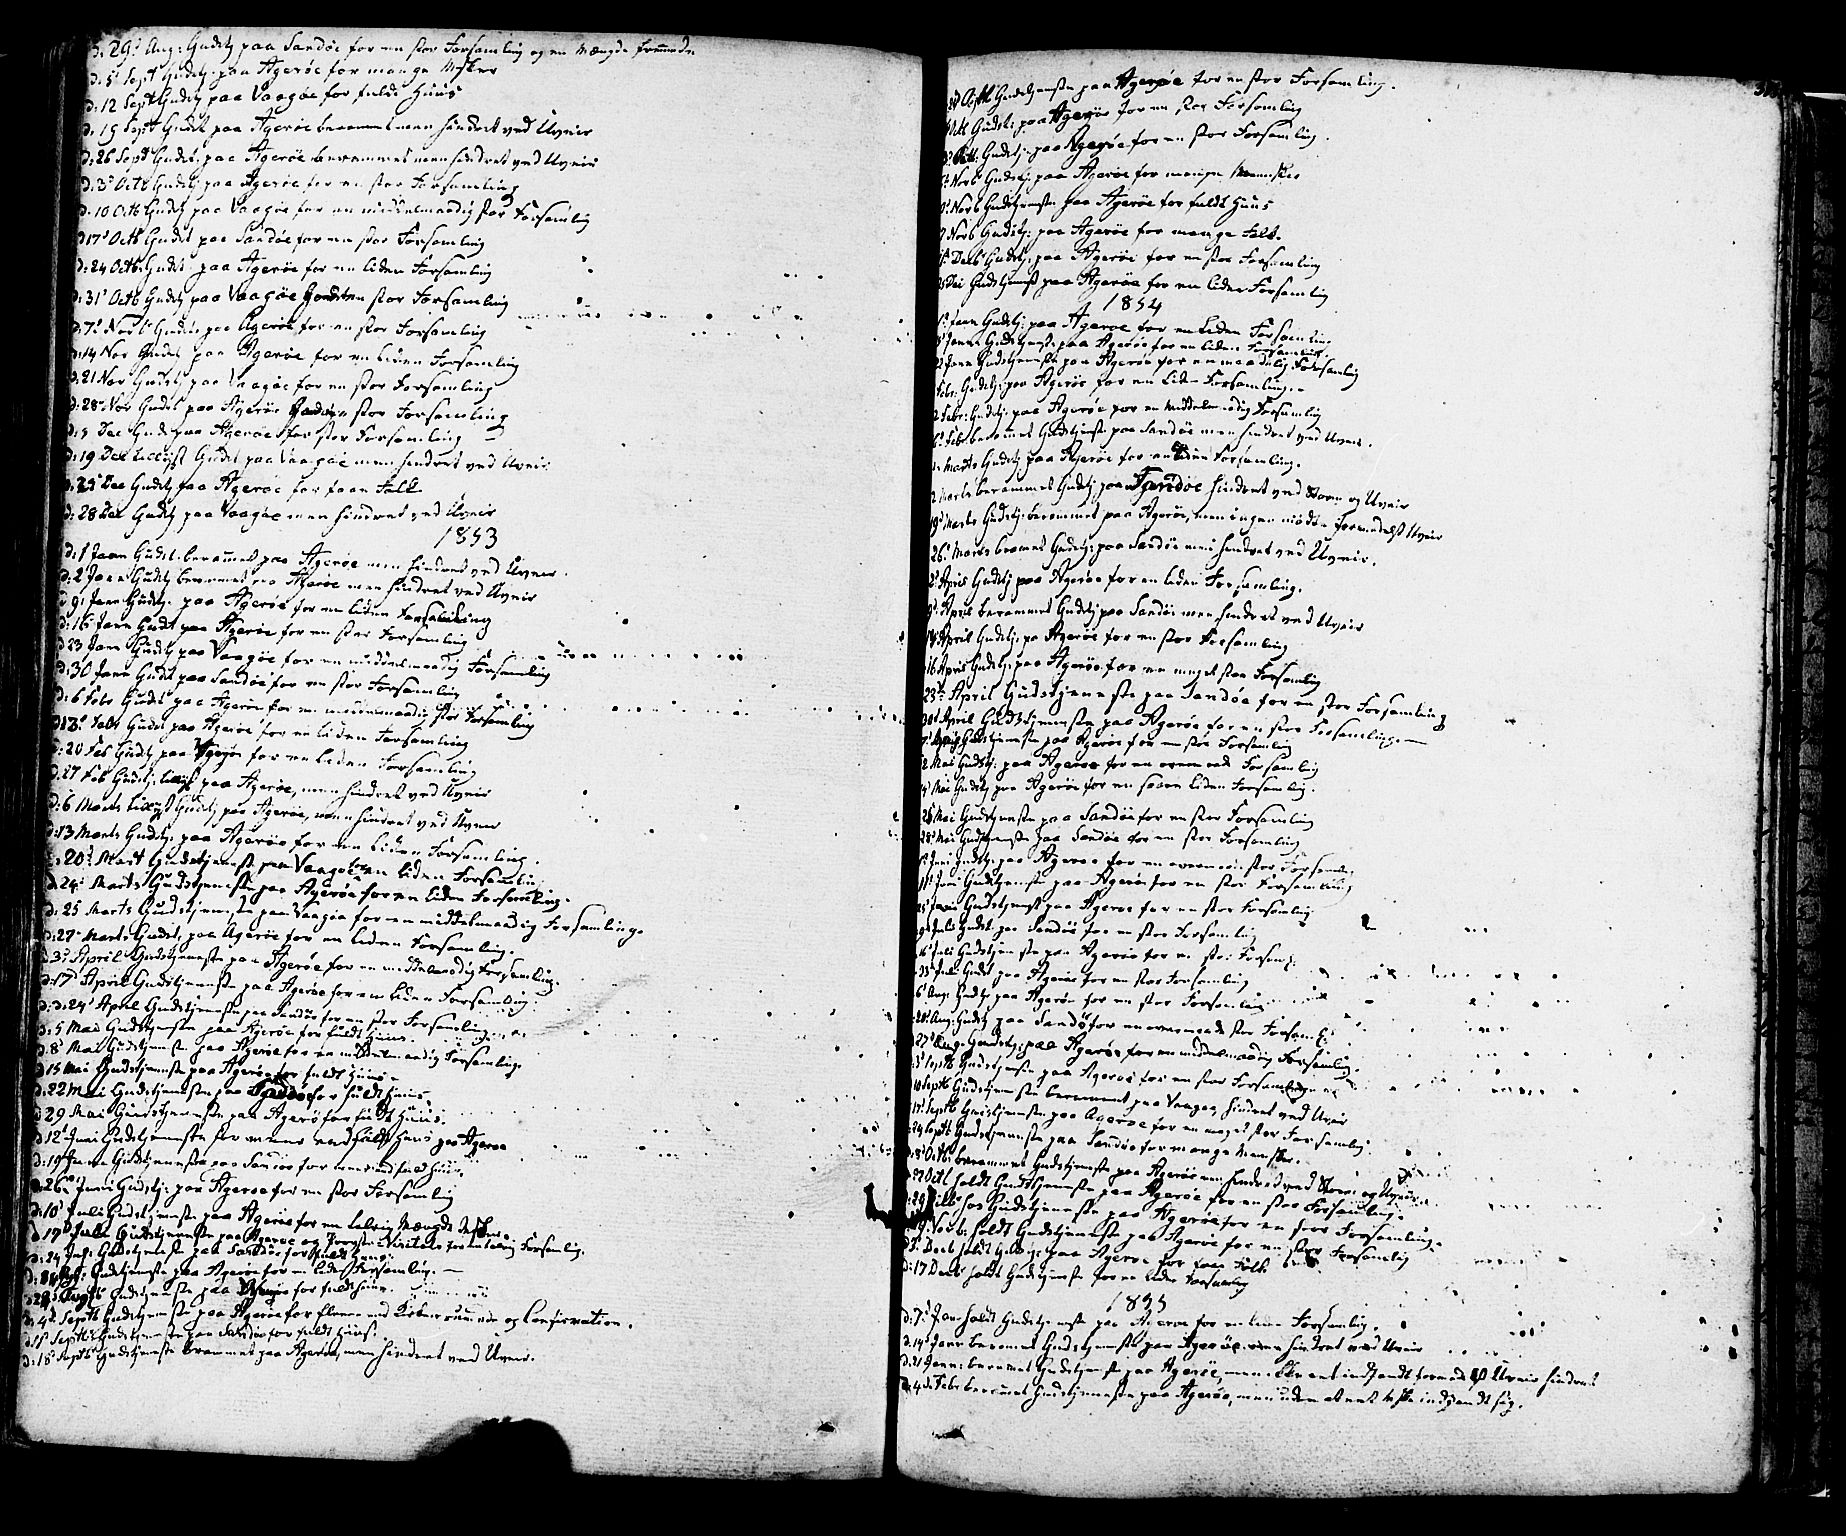 d: 29' Aug: Gudstj paa Sandøe for en stor Forsamling og en Mængde fremmede.
d: 5' Sept Gudstj. paa Agerøe for mange Msker
d: 12 Sept Gudstj paa Vaagøe for fuldt Huus
d: 19 Sept Gudst paa Agerøe berammet men hindret ved Uveir
d: 26 Sept Gudst. paa Agerøe berammet men hindret ved Uveir
d: 3' Octb Gudstj paa Agerøe for en stor Forsamling
d: 10 Octb Gudstj paa Vaagøe for en middelmaadig stor Forsamling
d 17' Octb Gudst paa Sandøe for en stor Forsamling
d: 24 Octb. Gudst. paa Agerøe for en liden Forsamling
d: 31' Octb Gudstj paa Vaagøe for en stor Forsamling
d: 7' Novb Gudst. paa Agerøe for en stor Forsamling
d: 14 Nov Gudstj paa Agerøe for en liden Forsamling
d. 21 Nov Gudstj paa Vaagøe for en stor Forsamling
d: 28' Nov Gudst paa Agerøe for en stor Forsamling
d: 5 Dec Gudst paa Agerøe for stor Forsamling
d: 19 Dec Gudst paa Vaagøe men hindret ved Uveir
d: 25' Dec Gudstj paa Agerøe for faae Folk
d: 28 Dec Gudstj paa Vaagøe men hindret ved Uveir
1853
d: 1 Janr Gudst. berammet paa Agerøe men hindret ved Uveir.
d: 2' Janr Gudstj berammet paa Agerøe men hindret ved Uveir
d 9' Janr Gudstj. paa Agerøe for en liden Forsamling
d: 16 Janr Gudst paa Agerøe for en stor Forsamling
d 23 Janr Gudstj paa Vaagøe for en middelmaadig Forsamling
d: 30 Janr Gudst paa Sandøe for en stor Forsamling
d: 6 Febr Gudst paa Agerøe for en middelmaadig stor Forsamling
d 13' Febr Gudst paa Agerøe for en liden Forsamling
d: 20 Feb Gudstj paa Agerøe for en liden Forsamling
d. 27 Feb Gudstj. paa Agerøe, men hindret ved Uveir
d: 6 Marts Gudstj paa Agerøe, men hindret ved Uveir
d: 13 Marts Gudstj. paa Agerøe for en liden Forsamling.
d: 20' Mart Gudstjeneste paa Vaagøe for en liden Forsamling
d: 24' Marts Gudstjeneste paa Agerøe for en liden Forsamling.
d: 25 Marts Gudstjeneste paa Vaagøe for en middelmaadig Forsamling.
d: 27' Marts Gudst. paa Agerøe for en liden Forsamling
d. 3' April Gudstjeneste paa Agerøe for en middelmaadig Forsamling.
d: 17' April Gudstjeneste paa Agerøe for en liden Forsamling.
d: 24' April Gudstjeneste paa Sandøe for en stor Forsamling
d. 5 Mai Gudstjeneste paa Agerøe for fuldt Huus.
d. 8' Mai Gudstjeneste paa Agerøe for en middelmaadig Forsamling.
d 15 Mai Gudstjeneste paa Agerøe for fuldt Huus.
d: 22 Mai Gudstjeneste paa Sandøe for fuldt Huus.
d 29 Mai Gudstjeneste paa Agerøe for fuldt Huus.
d 12' Juni Gudstjeneste for mere end fuldt Huus paa Agerøe
d: 19 Juni Gudstjeneste paa Sandøe for mere end fuld Huus.
d: 26' Juni Gudstj: paa Agerøe for en stor Forsamling
d: 10' Juli Gudstjeneste paa Agerøe for en Mængde Msker.
d 17' Julii Gudstjeneste paa Agerøe og Provste Visitats for Forsamling.
d: 24 Gudstjeneste paa Sandøe for fuldt Huus.
Gudstjeneste paa Agerøe for en liden Forsamling.
d 28' Gudstjeneste paa for fuldt Huus.
d: 4' Septb Gudstjeneste paa Agerøe for flere end Kirken rummede og Confirmation.
d. 11' Septb Gudstjeneste paa Sandøe for fuldt Huus.
d: 18' Septb Gudstjeneste berammet paa Agerøe, men hindret ved Uveir.
Octb Gudstjeneste paa Agerøe for en stor Forsamling.
Octb Gudst. paa Agerøe for en stor Forsamling
Octb. Gudstj. paa Agerøe for en stor Forsamling.
Novb Gudstj. paa Agerøe for mange Mennsker
Novb Gudstjeneste paa Agerøe for fuldt Huus
Novb Gudstj. paa Agerøe for mange Folk.
Decb Gudstj. paa Agerøe for en stor Forsamling
Dec Gudstjenest paa Agerøe for en liden Forsamling
1854
Janr Gudstj. paa Agerøe for en liden Forsamling
Janr Gudstjenest. paa Agerøe for en liden Forsamling.
Janr Gudstjeneste paa Agerøe for en maadelig Forsamling
Febr. Gudstj. paa Agerøe for en liden Forsamling.
Febr: Gudstj. paa Agerøe for en Middelmaadig Forsamling
Febr. berammet Gudstjeneste paa Sandøe men hindret ved Uveir.
Marts Gudstj. paa Agerøe for en liden Forsamling.
Marts berammet Gudstj. paa Sandøe hindret ved Storm og Uveir
19' Marts Gudstj. berammet paa Agerøe, men ingen mødte formedelst Uveir
26' Marts berammet Gudstj. paa Sandøe men hindret ved Uveir.
2' April Gudstj paa Agerøe for en liden Forsamling.
9' April berammet Gudstj paa Sandøe men hindret ved Uveir
April Gudstj. paa Agerøe for en stor Forsamling
16 April Gudstj. paa Agerøe for en meget stor Forsamling
23' April Gudstjeneste paa Sandøe for en stor Forsamling
30' April Gudstjeneste paa Agerøe for en stor Forsamling.
Gudstjeneste paa Agerøe for en stor Forsamling
Mai Gudstj. paa Agerøe for en Forsamling
Mai Gudstj paa Agerøe for en liden Forsamling.
25 Mai Gudstjeneste paa Sandøe for en stor Forsamling
28' Mai Gudstjeneste paa Sandøe for en stor Forsamling
Juni Gudstj. paa Agerøe for en stor Forsamling
Juni Gudstjeneste paa Agerøe for en stor Forsamling
25' Juni Gudstjeneste paa Agerøe for en stor Forsamling
9' Juli Gudst. paa Sandøe for en stor Forsamling
16' Juli Gudstjeneste paa Agerøe for en stor Forsaml.
Juli Gudst paa Agerøe for en stor Forsamling
6' Aug. Gudstj paa Agerøe for en stor Forsamling
20' Aug: Gudstj paa Sandøe for en stor Forsaml:
27' Aug. Gudstj. paa Agerøe for en middelmaadig Forsamling.
3' Septb Gudstjeneste paa Agerøe for en stor Forsamling
10 Septb Gudstjeneste berammet paa Vaagøe, hindret ved Uveir
17' Septb Gudstjeneste paa Agerøe for en meget stor Forsamling
24 Septb Gudstjeneste paa Sandøe for mange Mensker.
d: 8' Octb. berammet Gudstjeneste paa Agerøe men hindret ved Storm og Uveir.
d: 22 Octb holdt Gudstjeneste paa Agerøe for en stor Forsamling.
d: 29 Gudstjeneste paa Agerøe for en stor Forsamling.
Novb: holdt Gudstjeneste paa Agerøe for en stor Forsamling
Decb holdt Gudstj. paa Agerøe for faae Folk
d: 17 Decb holdt Gudstjeneste for en liden Forsamling
1855
d: 7' Janr holdt Gudstjeneste paa Agerøe for en liden Forsamling.
d: 14' Janr berammet Gudstjeneste paa Agerøe men hindret ved Uveir
d: 21 Janr: berammet Gudstjeneste paa Agerøe, men formedelst Uveir hindret
d. 4' Febr berammet Gudstjeneste paa Agerøe, men uden at indfandt sig.